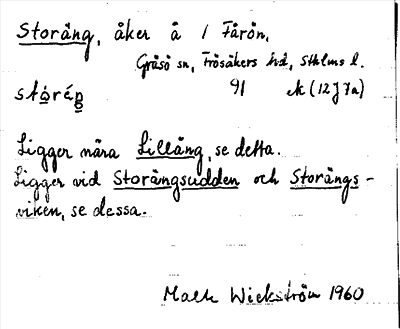 Storäng, åker å / Fårön.
Gräsö sn, Frösåkers hd, Sthlms l.
stóräŋ̀ 91 ek (12J 7a)
Ligger nära Lilläng, se detta.
Ligger vid Storängsudden och Storängs-
viken, se dessa.
Wickström 1960